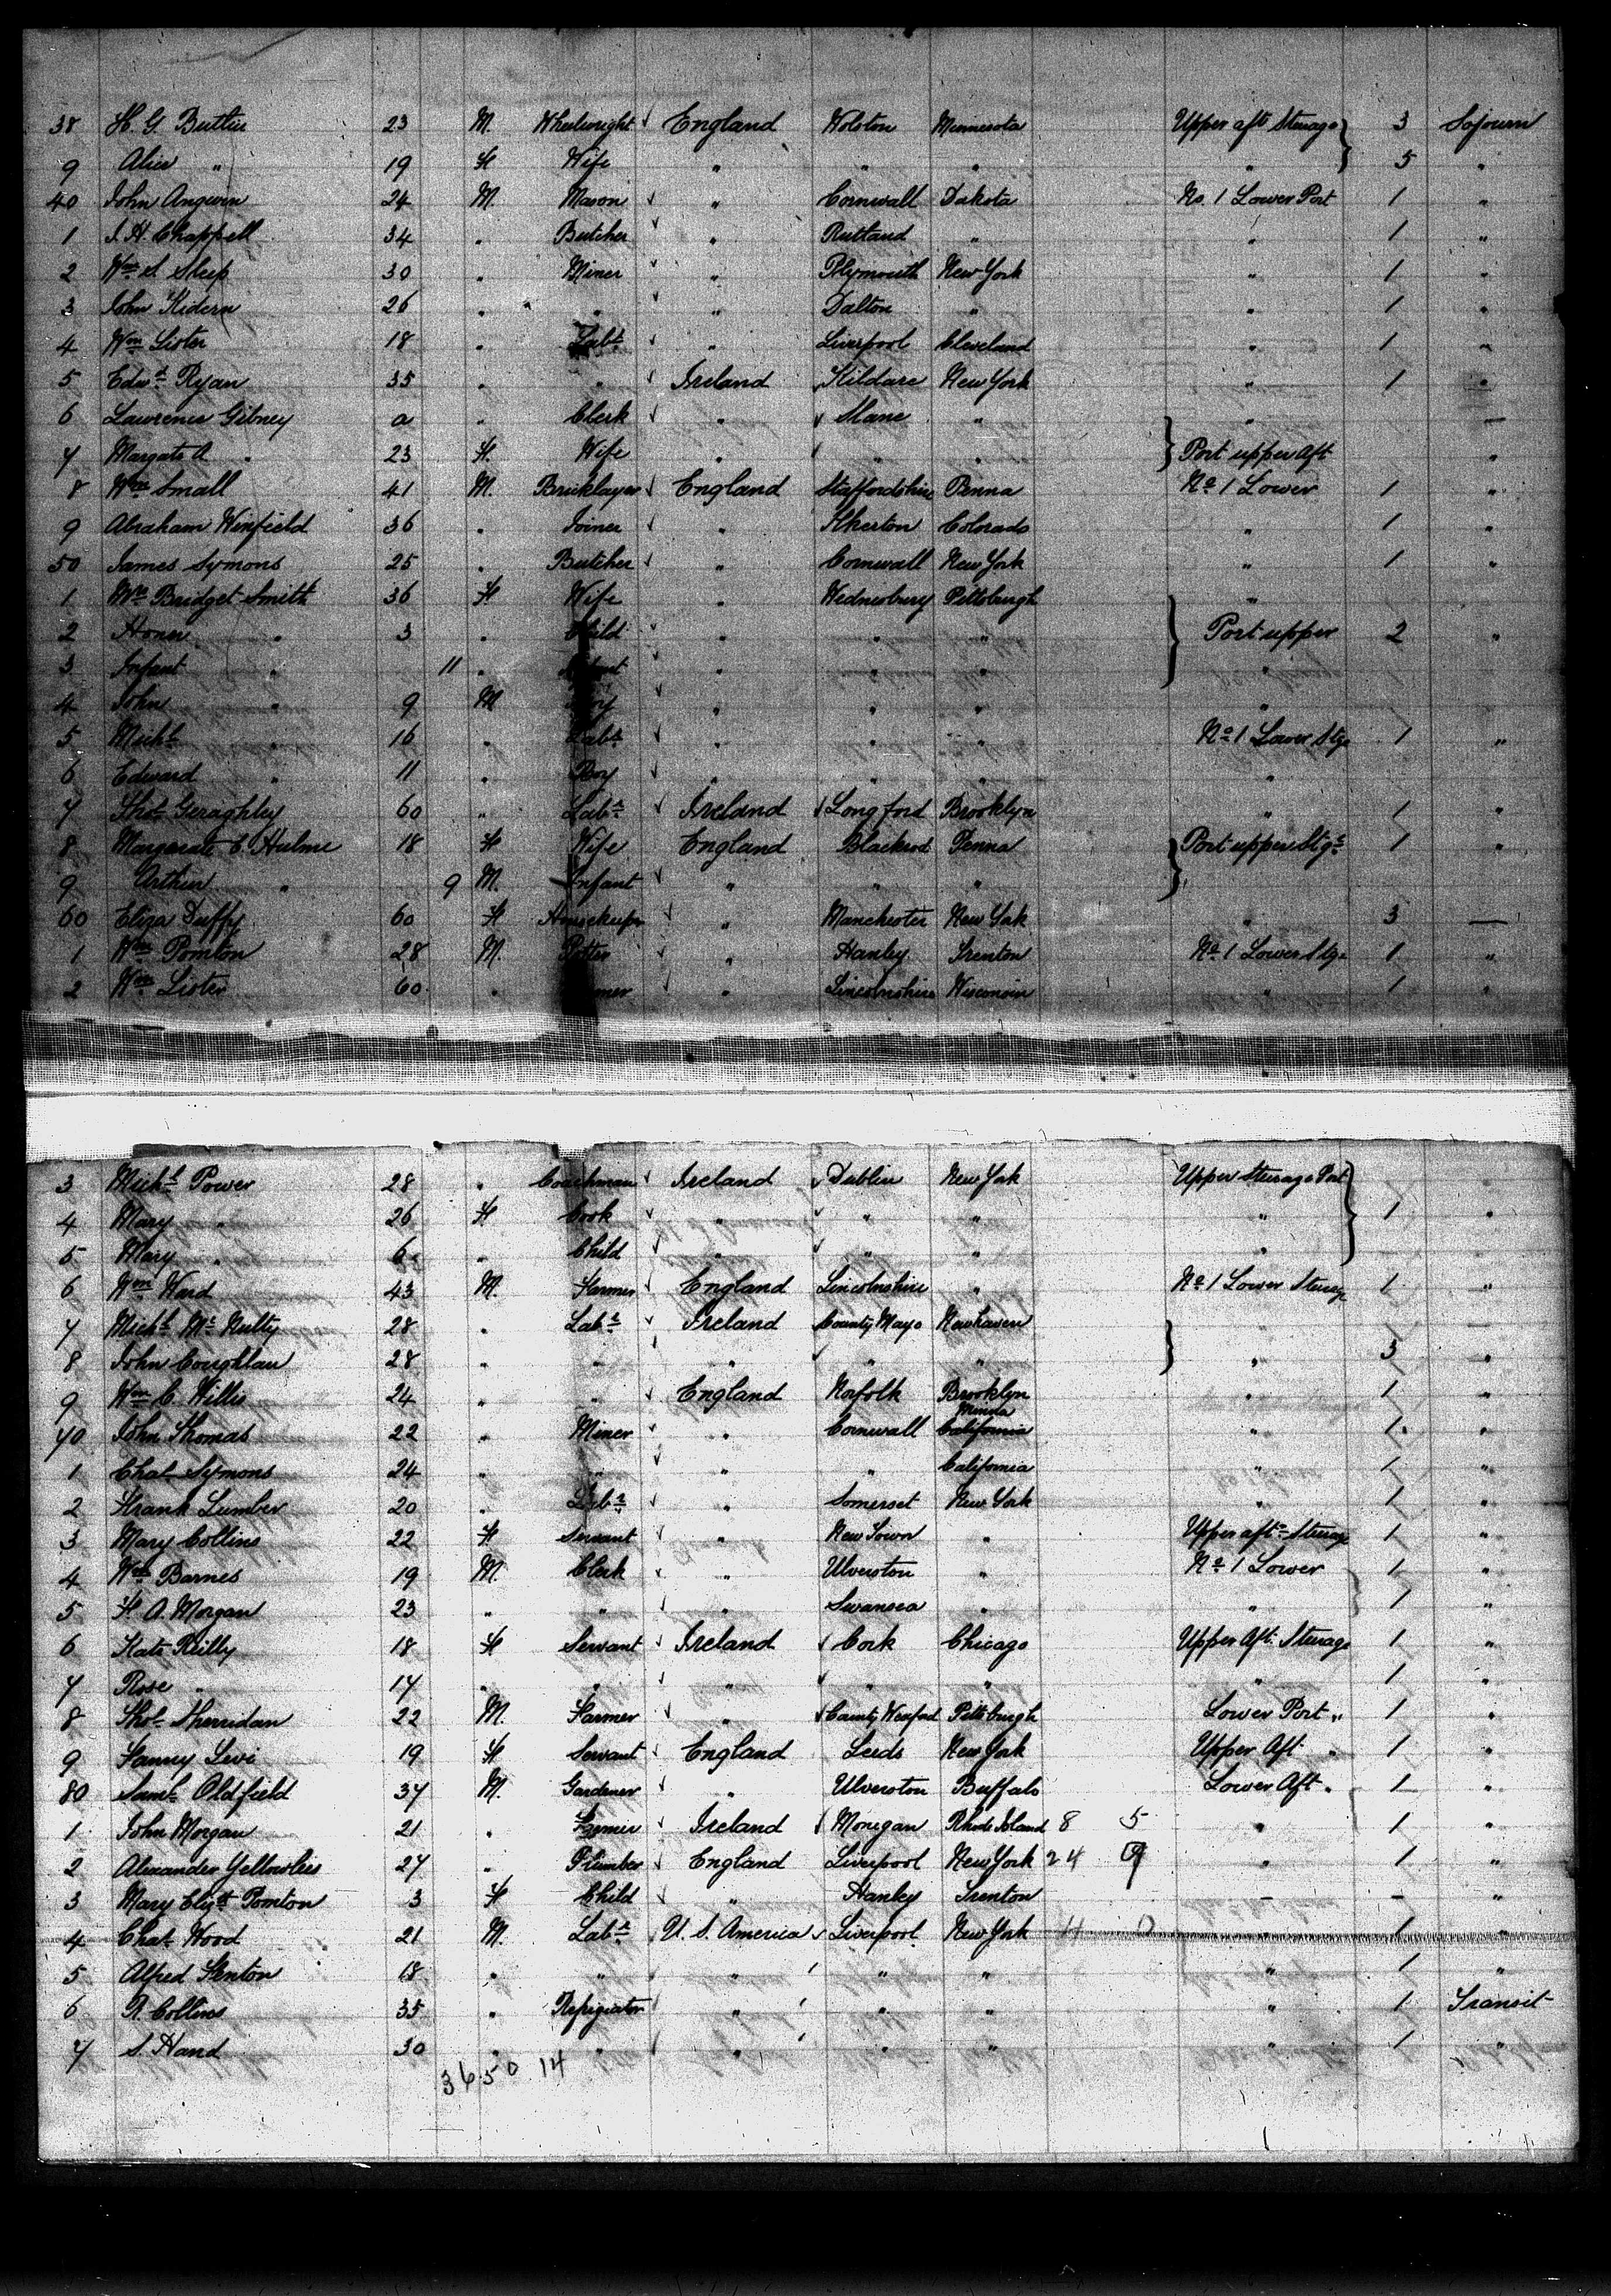 38 H. G. Butler 23 M. Wheelwright England Wolston Minnesota Upper aft Steerage 3 Sojourn
9 Alice " 19 F Wife " " " " 5 "
40 John Angwin 24 M. Mason " Cornwall Dakota No. 1 Lower Port 1 "
1 J. H. Chappell 34 " Butcher " Rutland " " 1 "
2 Wm S. Sleep 30 " Miner " Plymouth New York " 1 "
3 John Kidern 26 " " " Dalton " " 1 "
4 Wm Lister 18 " Labr " Liverpool Cleveland " 1 "
5 Edwd Ryan 35 " " Ireland Kildare New York " 1 "
6 Lawrence Gibney a " Clerk " Slane " " —
7 Margate A " 23 F. Wife " " " Port upper Aft "
8 Wm Small 41 M. Bricklayer England Staffordshire Penna No 1 Lower 1 "
9 Abraham Winfield 36 " Joiner " Ilkerton Colorado " 1 "
50 James Symons 25 " Butcher " Cornwall New York " 1 "
1 Mrs Bridget Smith 36 F Wife " Wednesbury Pittsburgh "
2 Honer " 3 " Child " " " Port upper 2 "
3 Infant " 11 " Infant " " " "
4 John " 9 M Boy " " " "
5 Michl " 16 " Labr " " " No 1 Lower Stge 1 "
6 Edward " 11 " Boy " " " "
7 Thos Geraghley 60 " Labr Ireland Longford Brooklyn " 1 "
8 Margarate E. Hulme 18 F Wife England Blackrod Penna Port upper Stge 1 "
9 Arthur " 9 M. Infant " " "
60 Eliza Duffy 60 F Housekeeper " Manchester New York " 3 —
1 Wm Pointon 28 M. Potter " Hanley Trenton No 1 Lower Stge 1 "
2 Wm Lister 60 " " Lincolnshire Wisconsin " 1 "
3 Michl Power 28 " Coachman Ireland Dublin New York Upper Steerage Port
4 Mary " 26 F Cook " " " " 1 "
5 Mary " 6 " Child " " " "
6 Wm Ward 43 M. Farmer England Lincolnshire " No 1 Lower Steerage 1 "
7 Michl McNulty 28 " Labr Ireland County Mayo Newhaven
8 John Coughlan 28 " " " " " " 3 "
9 Wm C. Willis 24 " " England Norfolk Brooklyn " 1 "
Minna
70 John Thomas 22 " Miner " Cornwall California " 1 "
1 Chas Symons 24 " " " " California " 1 "
2 Frank Lumber 20 " Labr " Somerset New York " 1 "
3 Mary Collins 22 F Servant " New Town " Upper aft Steerage 1 "
4 Wm Barnes 19 M. Clerk " Ulverston " No 1 Lower 1 "
5 F. A. Morgan 23 " " " Swansea " " 1 "
6 Kate Reilly 18 F Servant Ireland Cork Chicago Upper Aft. Steerage 1 "
7 Rose " 17 " " " " " " 1 "
8 Thos Sherridan 22 M. Farmer " County Wexford Pittsburgh Lower Port " 1 "
9 Fanny Levi 19 F Servant England Leeds New York Upper Aft " 1 "
80 Saml Oldfield 37 M. Gardener " Ulverston Buffalo Lower Aft " 1 "
1 John Morgan 21 " Farmer Ireland Monegan Rhode Island 8 5 " 1 "
2 Alexander Yellowlees 27 " Plumber England Liverpool New York 24 9 " 1 "
3 Mary Elizth Pointon 3 F Child " Hanley Trenton - - "
4 Chas Wood 21 M. Labr U. S. America Liverpool New York 11 0 " 1 "
5 Alfred Fenton 18 " " " " " " 1 "
6 R. Collins 35 " Refrigerator " " " " 1 Transit
7 S. Hand 30 " " " " " " 1 "
3650 14